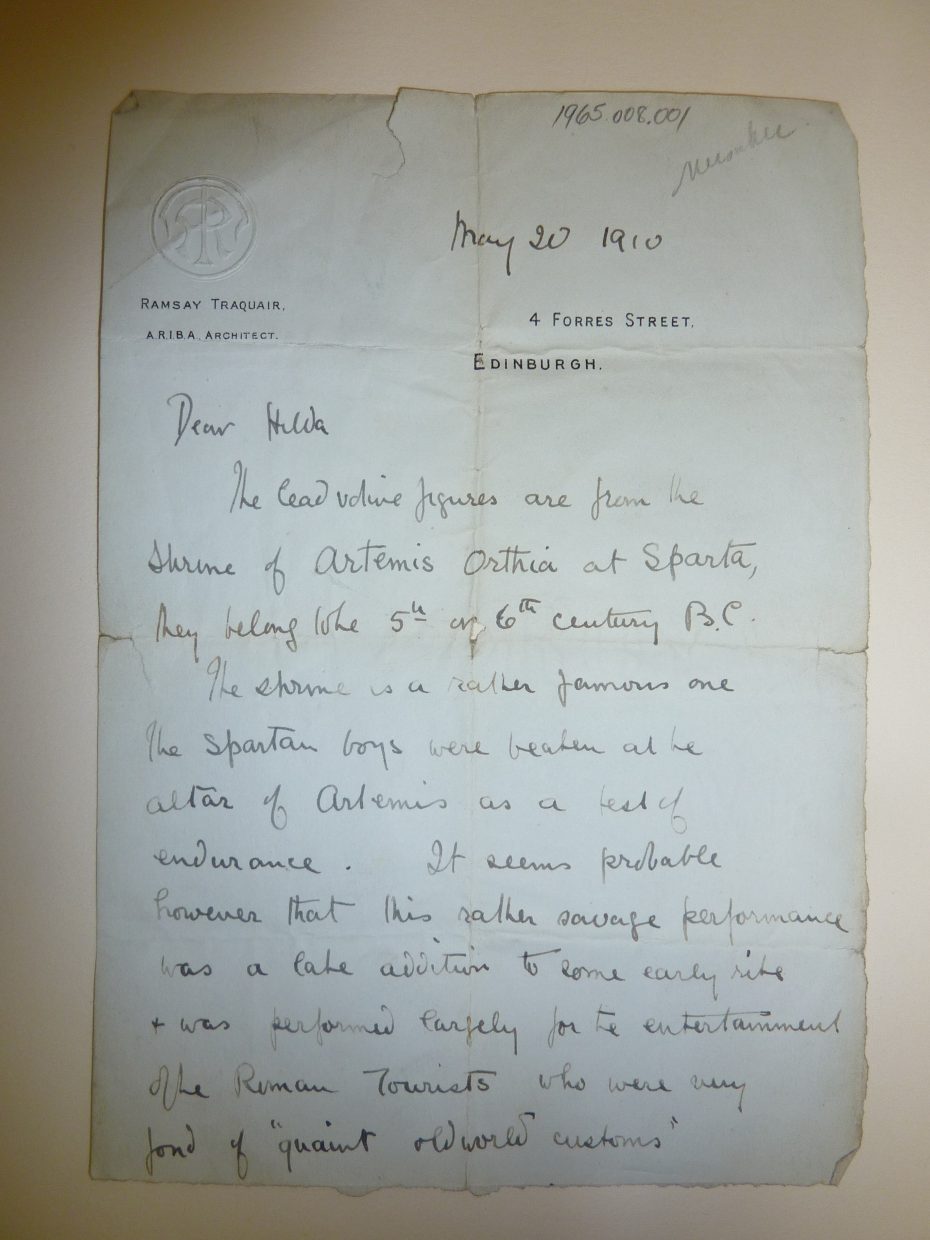 1965.008.001
May 20 1910
RAMSAY TRAQUAIR.
A.R.I.B.A., ARCHITECT.
4 FORRES STREET,
EDINBURGH.
Dear Hilda
The lead votive figures are from the
shrine of Artemis Orthia at Sparta,
they belong to the 5th or 6th century B.C.
The shrine is a rather famous one
The Spartan boys were beaten at the
altar of Artemis as a test of
endurance. It seems probable
however that this rather savage performance
was a late addition to some early rite
+ was performed largely for the entertainment
of the Roman Tourists who were very
fond of "quaint old world customs"